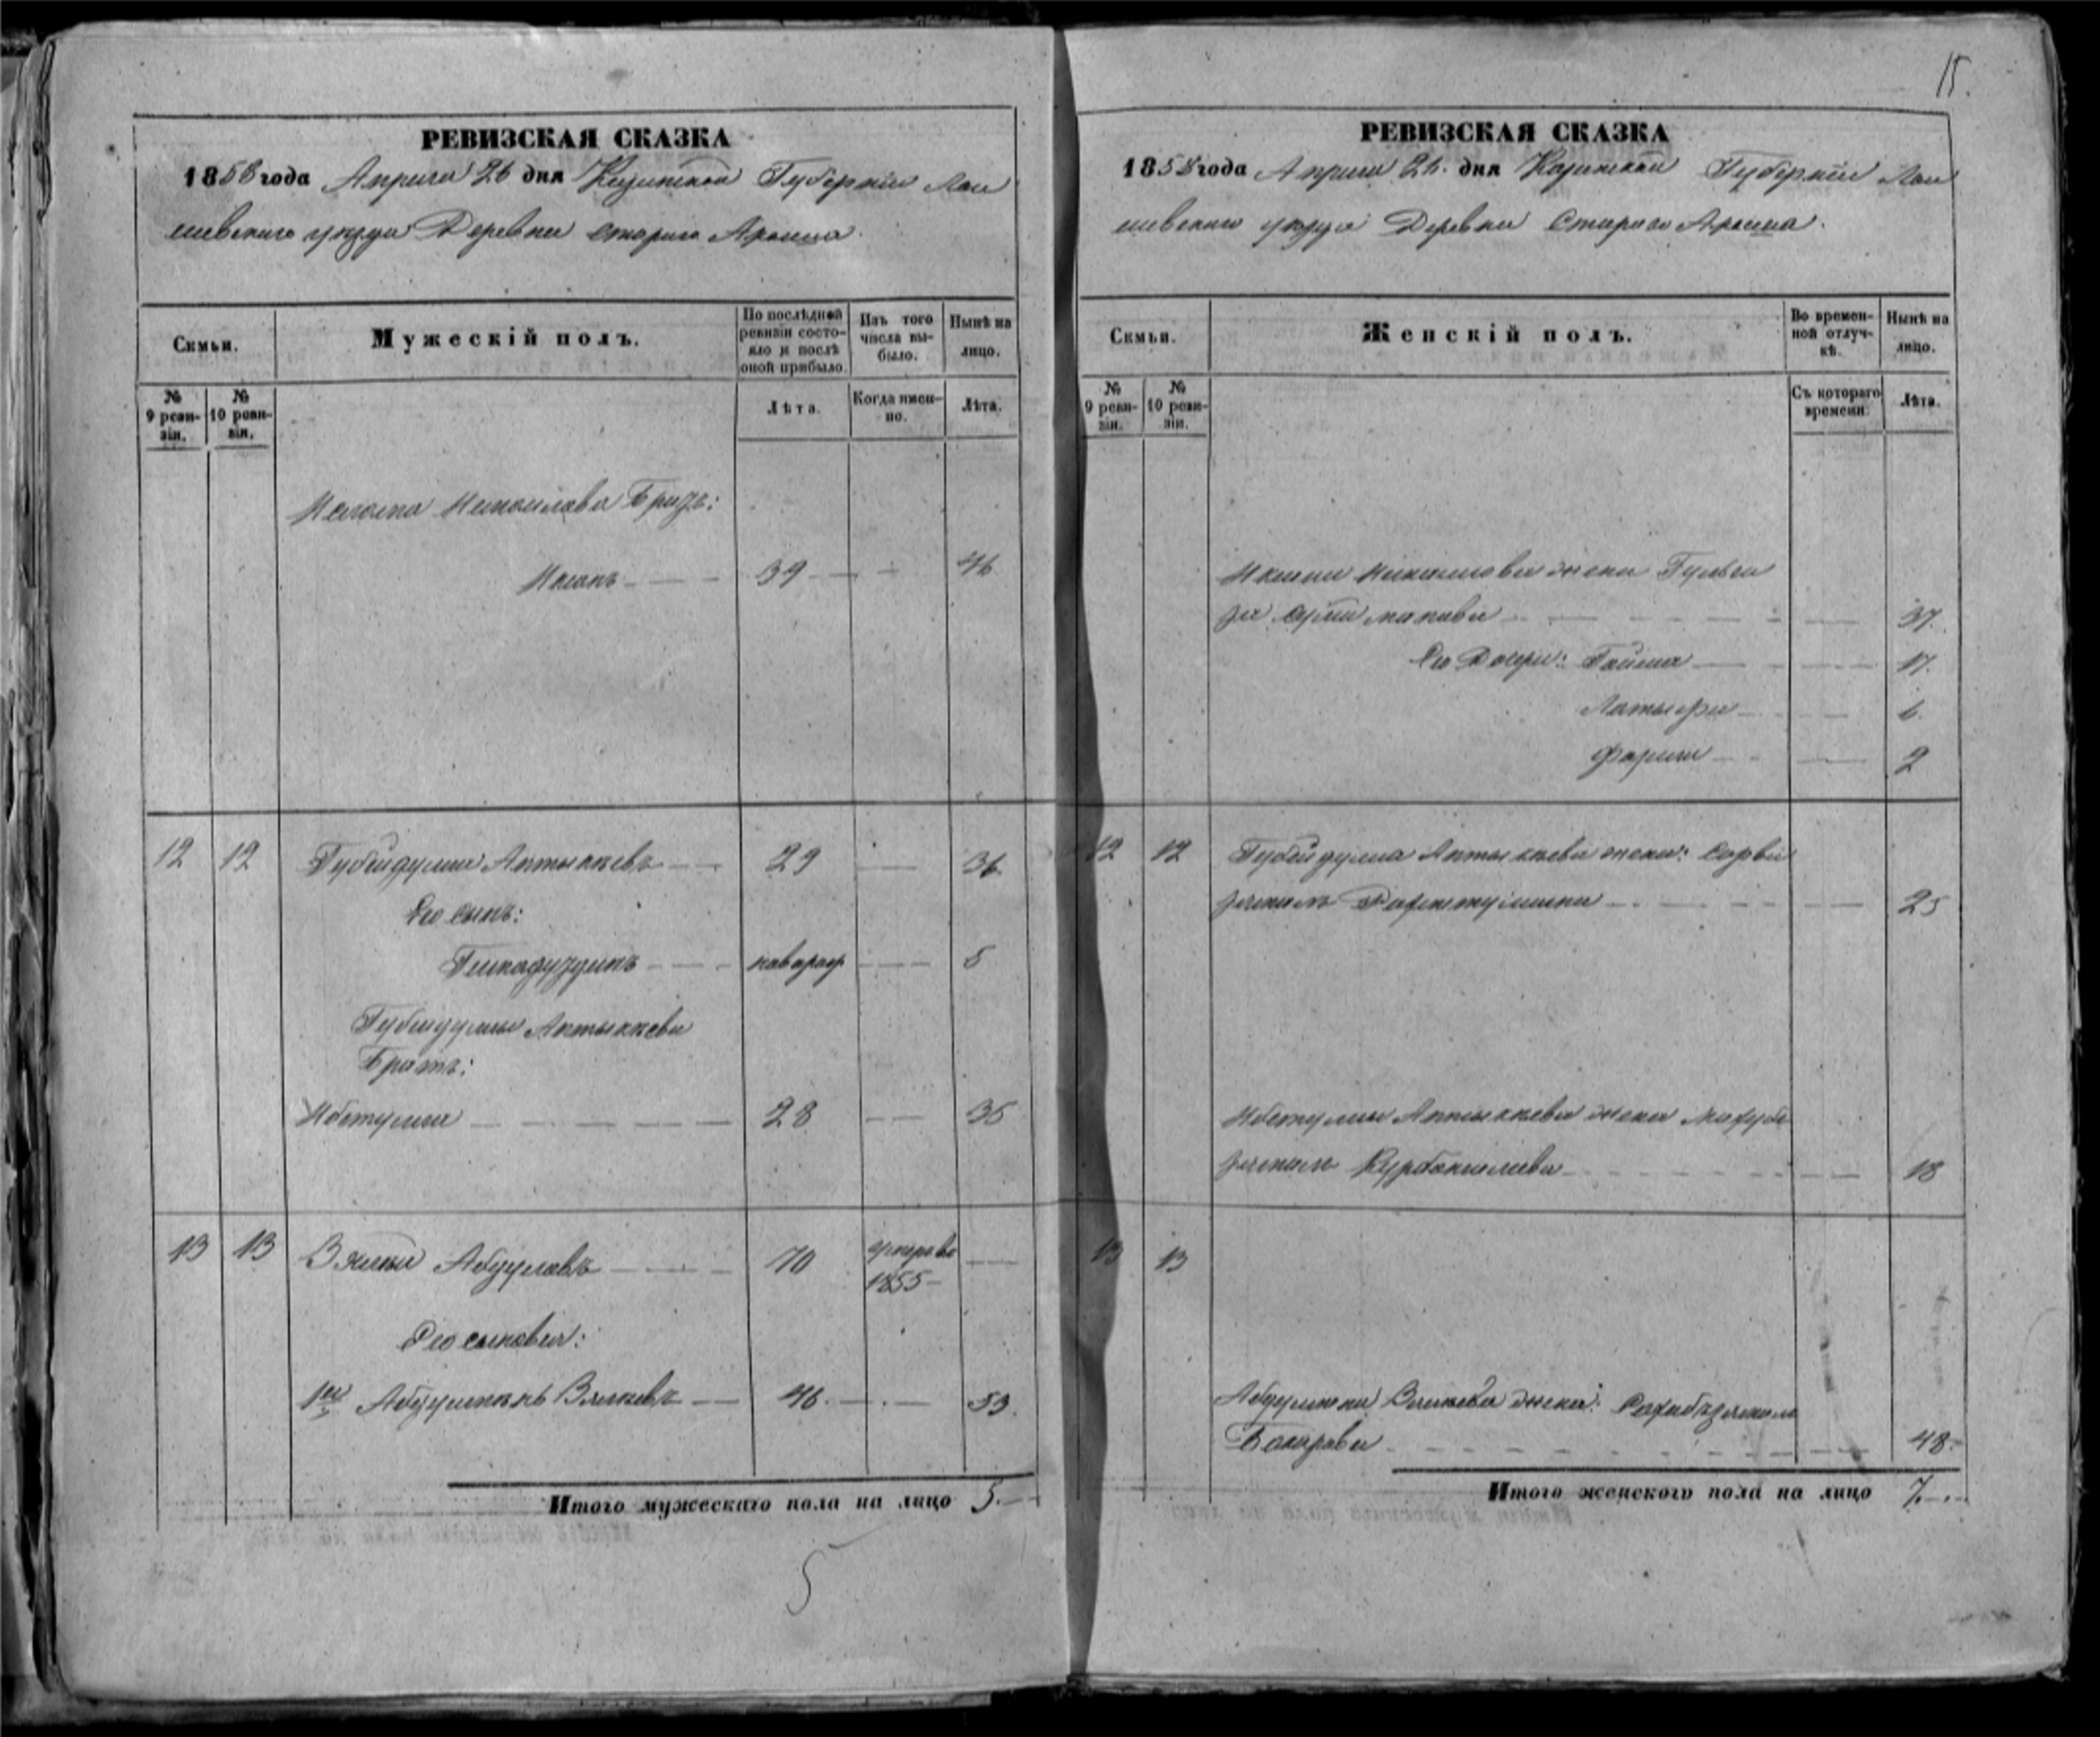 15.
РЕВИЗСКАЯ СКАЗКА
1858 года Апреля 26 дня Казанской Губернiи Лаи
шевскаго уезда Деревни Стараго Арыша.
Семьи.
Мужескій полъ.
По послѣдней ревизіи состояло и послѣ оной прибыло.
Изъ того числа выбыло.
Нынѣ на лицо.
№ 9 ревизіи.
№ 10 ревизіи.
Лѣта.
Когда именно.
Лѣта.
Исмаилова Братъ:
39 — 46
12 12 Губейдулла Аптыкѣевъ — 29 — 36
Его сынъ:
— 5
Губейдуллы Аптыкѣева
Братъ:
Ибетулла — 28 — 35
13 13 Вялки Абдуловъ — 70 умеръ въ —
1855 —
Его сыновья:
1й Вялкѣевъ — 46. — 53.
Итого мужескаго пола на лицо 5. —
5
РЕВИЗСКАЯ СКАЗКА
1858 года Апреля 26. дня Казанской Губернiи Лаи
шевскаго уезда Деревни Стараго Арыша.
Семьи.
Женскій полъ.
Во временной отлучкѣ.
Нынѣ на лицо.
№ 9 ревизіи.
№ 10 ревизіи.
Съ котораго времени.
Лѣта.
Исмаилова жена Гульга
за — 37.
Его Дочери: Гайша — 17.
Латыфа — 6.
Фариза — 2
12 12 Губейдуллы Аптыкѣева жена: Сарви
— 25
Ибетуллы Аптыкѣева жена Махубъ
замалъ Курбангалеева — 18
13 13
Вялкѣева жена: Сахибъзямалъ
Бакирова — 48.
Итого женскаго пола на лицо 7. —